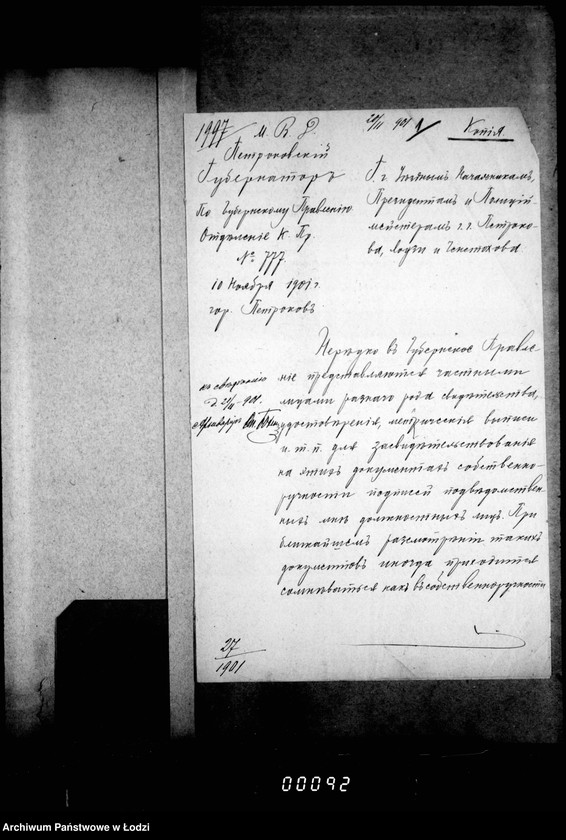 1997
М. В. Д.
Петроковскій
Губернаторъ
По Губернскому Правленію
Отдѣленіе К. Пр.
№ 777.
10 Ноября 1901 г.
гор. Петроковъ
21/11 901
Копія
Г. г. Уѣзднымъ Начальникамъ,
Президентамъ и Полицій-
мейстерамъ г. г. Петроко-
ва, Лодзи и Ченстохова
Нерѣдко въ Губернское Правле-
ніе представляются частными
лицами разнаго рода свидѣтельства,
удостовѣренія, метрическія выписи
и. т. п. для засвидѣтельствованія
на этихъ документахъ собственно-
ручности подписей подвѣдомствен-
ныхъ мнѣ должностныхъ лицъ. При
ближайшемъ разсмотрѣніи такихъ
документовъ иногда приходится
сомнѣваться какъ въ собственноручности
къ свѣдѣнію
21/11 - 901.
27/1901
00092
Archiwum Państwowe w Łodzi